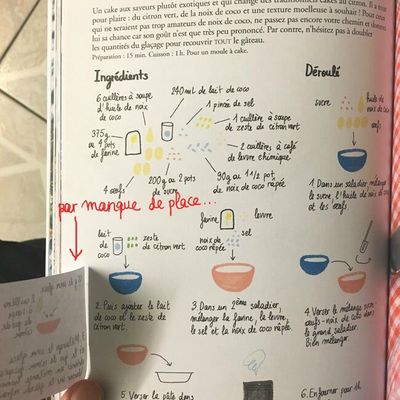 Un cake aux saveurs plutôt exotiques et qui change des traditionnels cakes au citron. Il a tout
pour plaire : du citron vert, de la noix de coco et une texture moelleuse à souhait ! Pour ceux
qui ne seraient pas trop amateurs de noix de coco, ne passez pas encore votre chemin et donnez
lui sa chance car son goût n'est que très peu prononcé. Par contre, n'hésitez pas à doubler
les quantités du glaçage pour recouvrir TOUT le gâteau.
Préparation : 15 min. Cuisson : 1 h. Pour un moule à cake.
Ingrédients
Déroulé
6 cuillères à soupe
d'huile de noix
de coco
240 ml de lait de coco
1 pincée de sel
1 cuillère à soupe
de zeste de citron vert
375g
ou 4 pots
de farine
2 cuillères à café
de levure chimique
4 œufs
200g ou 2 pots
de sucre
90g ou 1 1/2 pot
de noix de coco râpée
sucre
huile de
noix de
coco
œufs
1. Dans un saladier, mélanger
le sucre, l'huile de coco
et les œufs
par manque de place...
lait
de
coco
zeste
de citron vert
farine
levure
sel
noix de
coco râpée
2. Puis ajouter le lait
de coco et le zeste de
citron vert.
3. Dans un 2ème saladier,
mélanger la farine, la levure,
le sel et la noix de coco râpée.
4. Verser le mélange sucre
œufs-noix de coco dans
le grand saladier.
Bien mélanger.
5. Verser la pâte dans
6. Enfourner pour 1h.